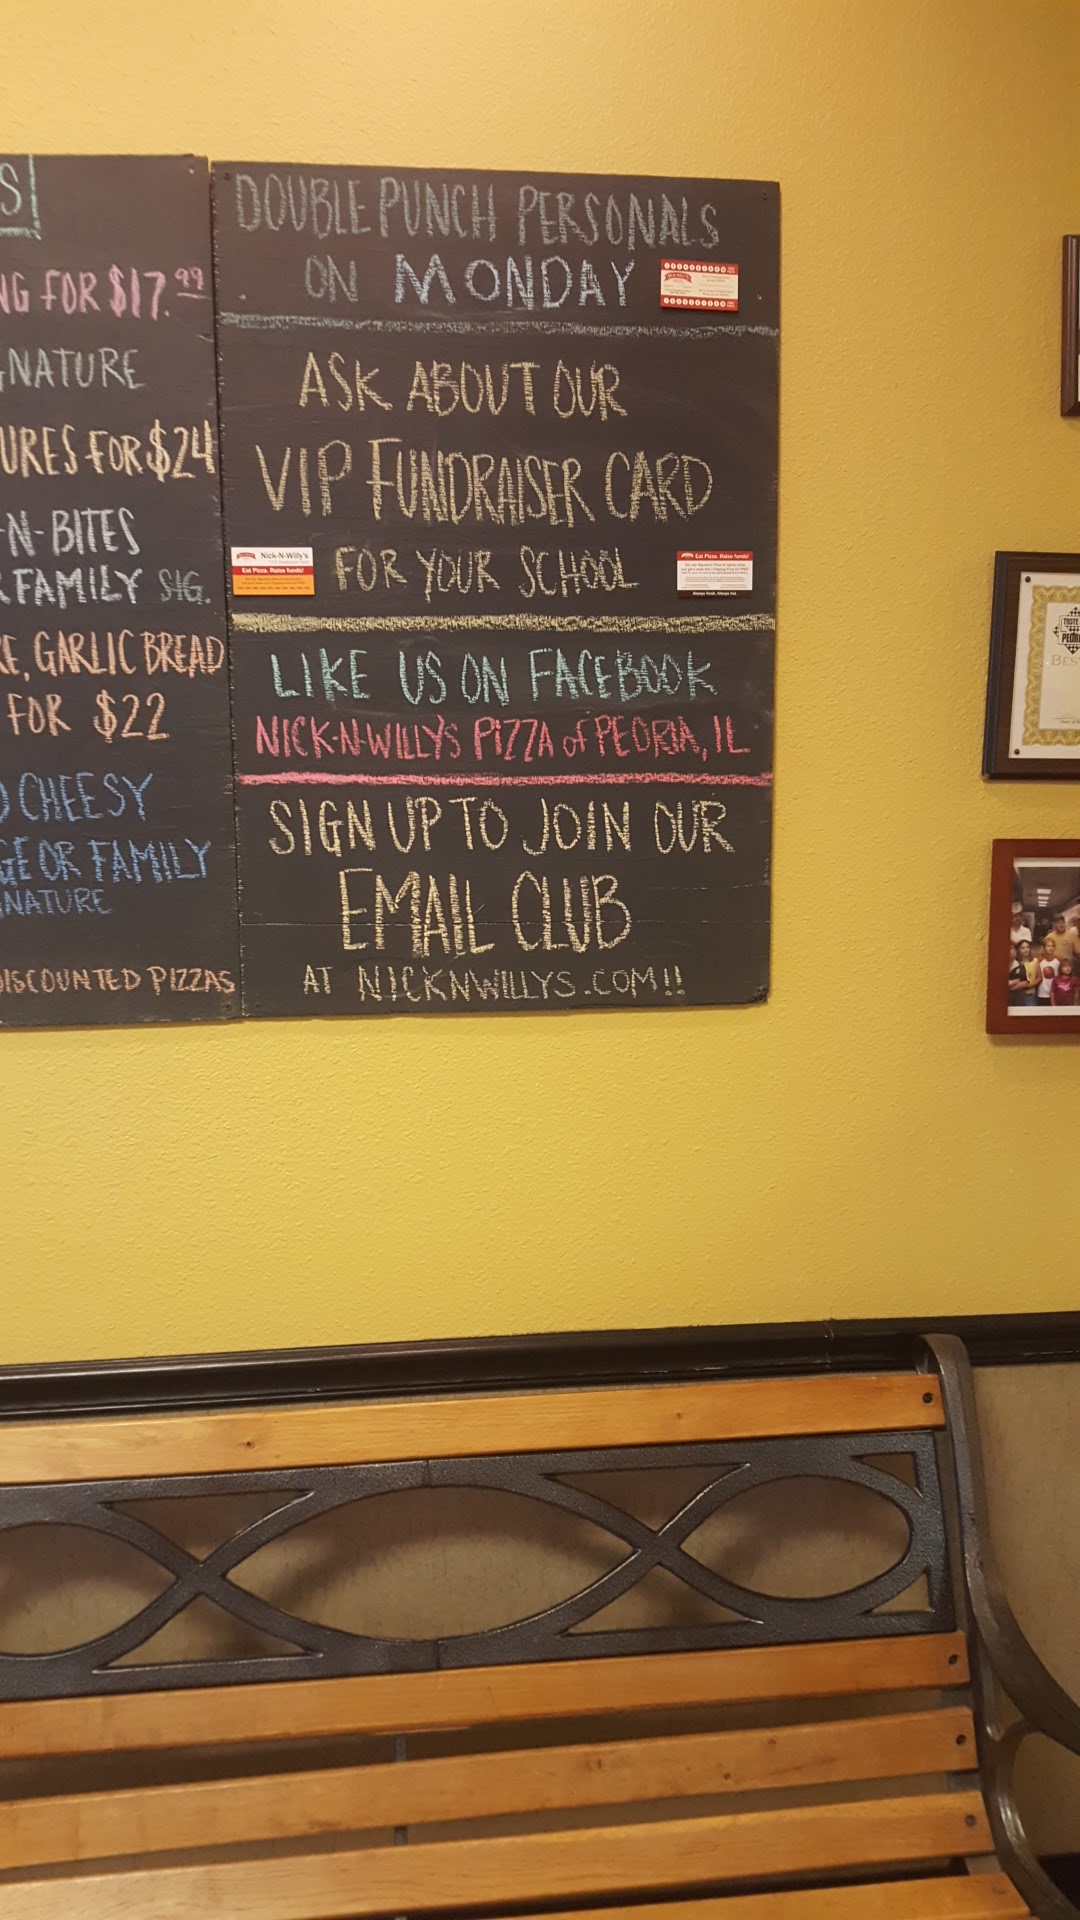 S
NG FOR $17.99
GNATURE
URES FOR $24
-N-BITES
FAMILY SIG.
RE, GARLIC BREAD
FOR $22
CHEESY
GE OR FAMILY
NATURE
DISCOUNTED PIZZAS
DOUBLE PUNCH PERSONALS
ON MONDAY
ASK ABOUT OUR
VIP FUNDRAISER CARD
FOR YOUR SCHOOL
Nick-N-Willy's
Eat Pizza. Raise funds!
Eat Pizza. Raise funds!
Always fresh. Always hot.
LIKE US ON FACEBOOK
NICK-N-WILLY'S PIZZA of PEORIA, IL
SIGN UP TO JOIN OUR
EMAIL CLUB
AT NICKNWILLYS.COM!!
TASTE
PEOR
BES